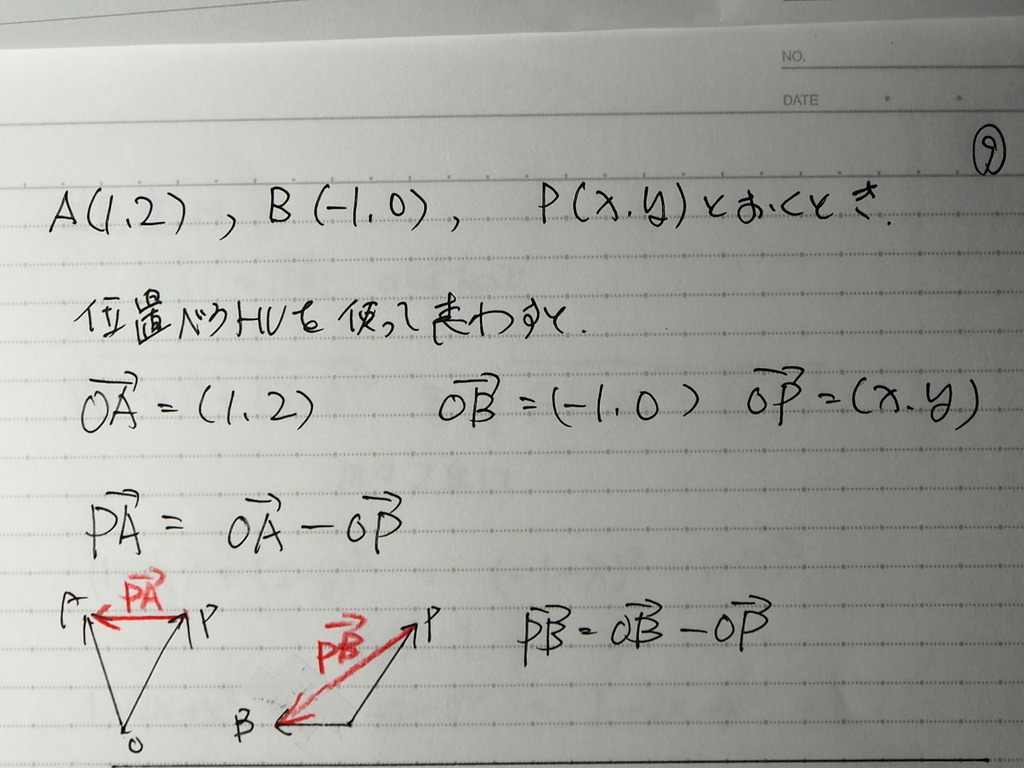 NO.
DATE
⑨
A(1,2), B(-1,0), P(x,y)とおくとき.
位置ベクトルを使って表わすと.
→OA = (1,2) →OB = (-1,0) →OP = (x,y)
→PA = →OA - →OP
→PA
A P
→PB
P
→PB = →OB - →OP
B
O